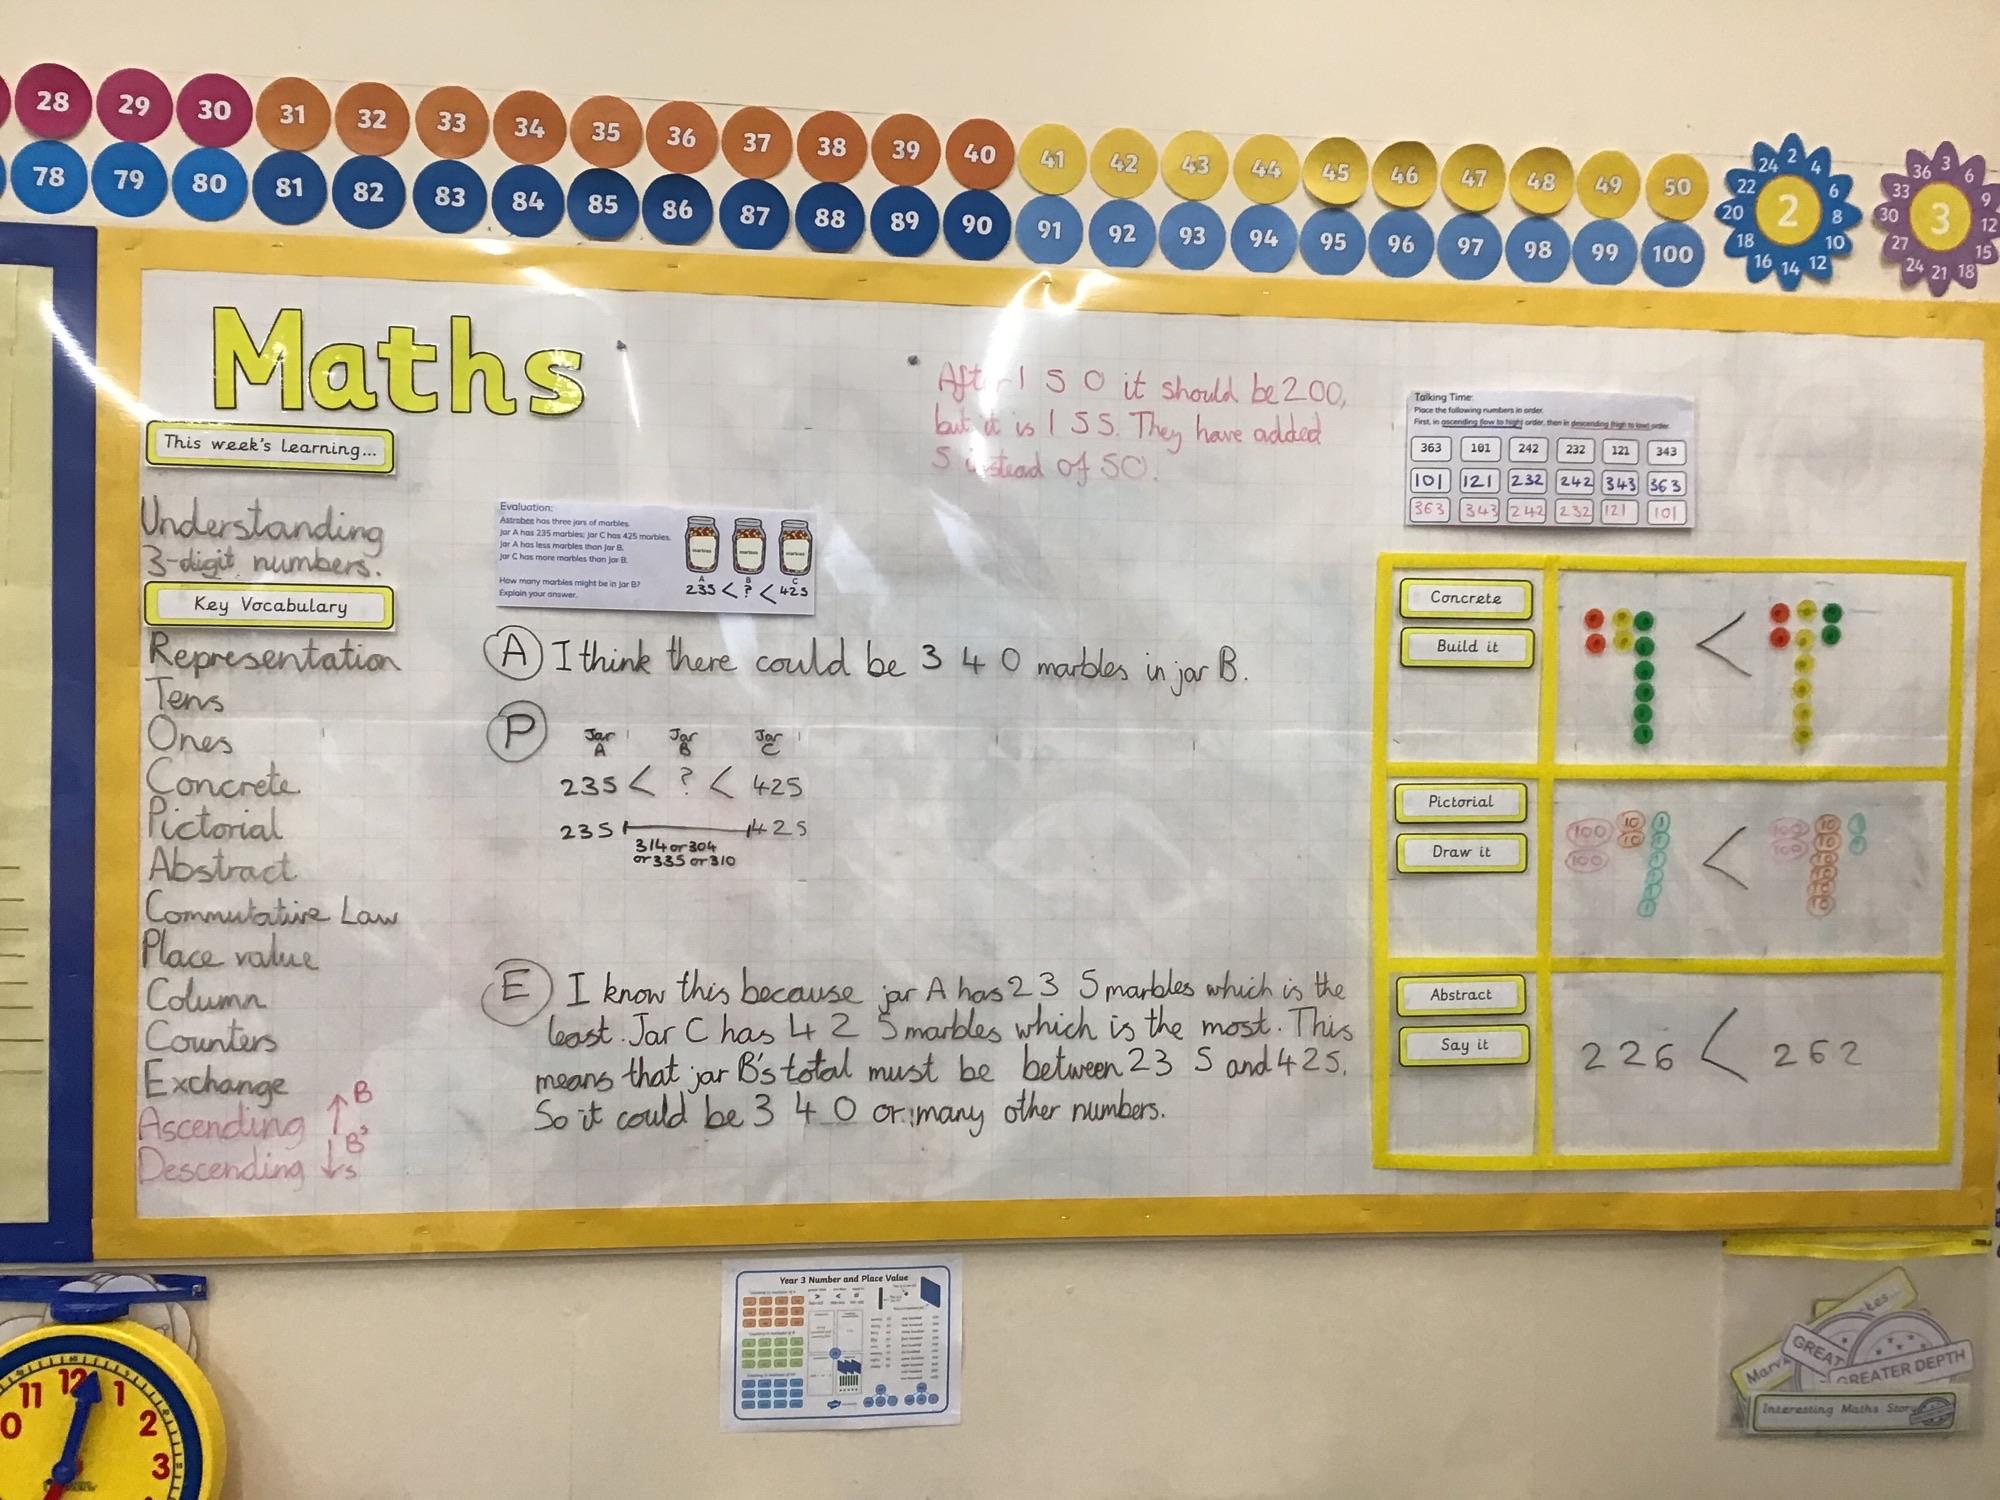 28 29 30 31 32 33 34 35 36 37 38 39 40 41 42 43 44 45 46 47 48 49 50
78 79 80 81 82 83 84 85 86 87 88 89 90 91 92 93 94 95 96 97 98 99 100
2 4 6 8 10 12 14 16 18 20 22 24
2
3 6 9 12 15 18 21 24 27 30 33 36
3
Maths
This week's learning...
Understanding
3-digit numbers.
Key Vocabulary
Representation
Tens
Ones
Concrete
Pictorial
Abstract
Commutative Law
Place value
Column
Counters
Exchange
Ascending ↑ B
B's
Descending ↓ s
Evaluation:
Astrobee has three jars of marbles.
Jar A has 235 marbles; Jar C has 425 marbles.
Jar A has less marbles than Jar B.
Jar C has more marbles than Jar B.
How many marbles might be in Jar B?
Explain your answer.
marbles marbles marbles
A B C
235 < ? < 425
After 150 it should be 200,
but it is 155. They have added
5 instead of 50.
A I think there could be 340 marbles in jar B.
P
Jar A Jar B Jar C
235 < ? < 425
235 425
314 or 304
or 335 or 310
E I know this because jar A has 235 marbles which is the
least. Jar C has 425 marbles which is the most. This
means that jar B's total must be between 235 and 425.
So it could be 340 or many other numbers.
Talking Time:
Place the following numbers in order.
First, in ascending (low to high) order, then in descending (high to low) order.
363 101 242 232 121 343
101 121 232 242 343 363
363 343 242 232 121 101
Concrete
Build it
<
Pictorial
Draw it
100 10 1 < 100 10
100 10 100
Abstract
Say it
226 < 262
Year 3 Number and Place Value
11 12 1
2
3
GREAT
GREATER DEPTH
Interesting Maths Story